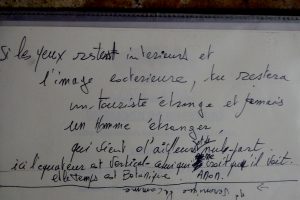 Si les yeux restent interieurs et
l'image exterieure, tu restera
un touriste étrange et jamais
un Homme étranger,
qui vient d'ailleurs nulle part.
ici l'équateur est vertical celui qui croit qu'il voit.
et le temps est Botanique